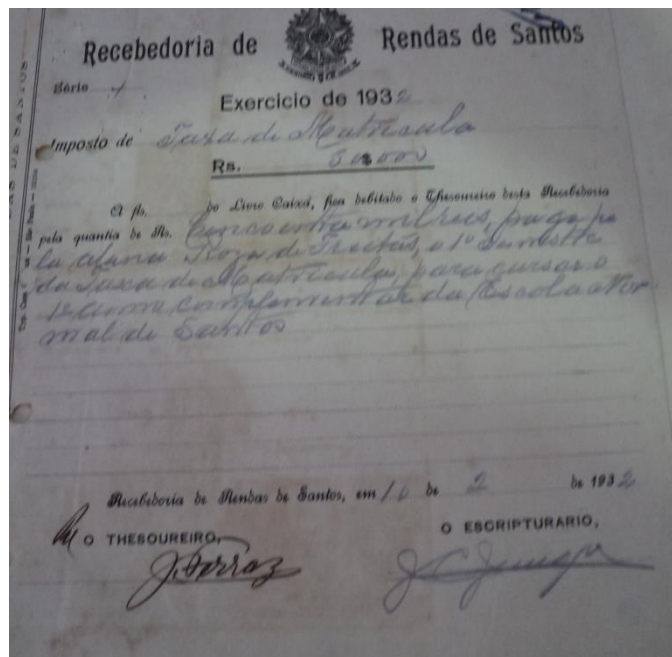 Recebedoria de Rendas de Santos
Série
Exercicio de 1932
Imposto de Taxa de Matricula
Rs. 50.000
A fls. do Livro Caixa, fica debitado o Thesoureiro desta Recebedoria
pela quantia de Rs. Cincoenta mil reis, pago pe
la aluna Roza de Freitas, o 1º Semestre
da Taxa de Matricula, para cursar o
1º anno complementar da Escola Nor
mal de Santos
Recebedoria de Rendas de Santos, em 10 de 2 de 1932
O THESOUREIRO,
O ESCRIPTURARIO,
J. Ferraz